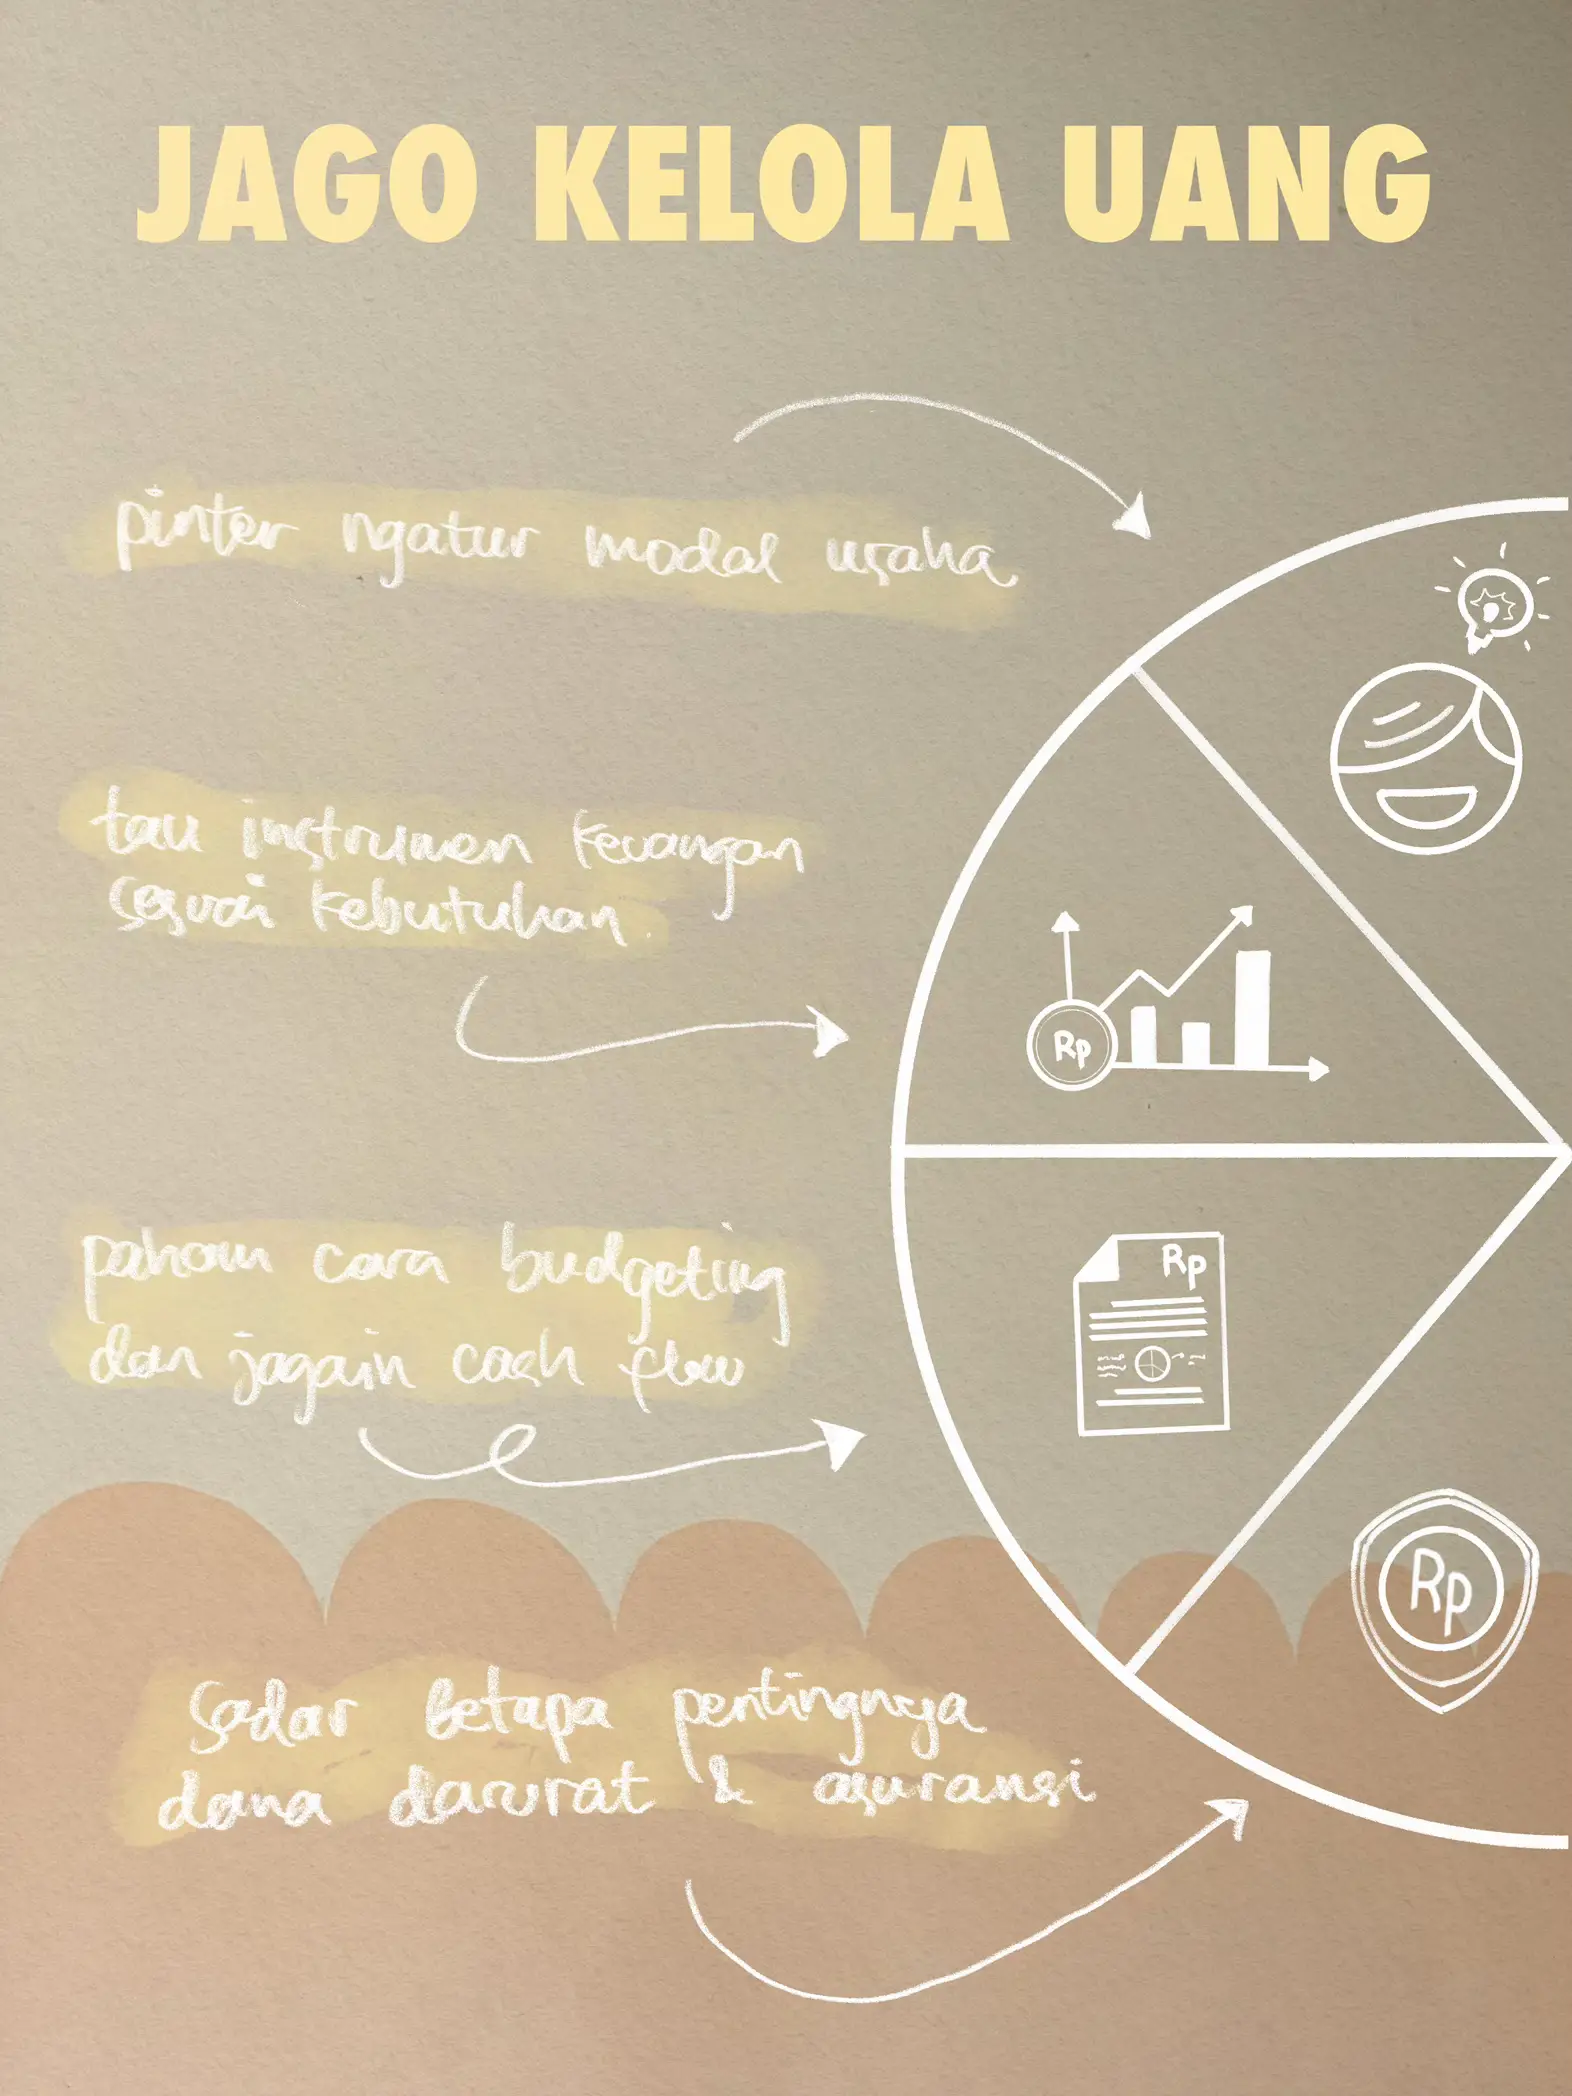 JAGO KELOLA UANG
pinter ngatur modal usaha
tau instrumen keuangan
sesuai kebutuhan.
Rp
paham cara budgeting
dan jagain cash flow
Rp
Rp
Sadar betapa pentingnya
dana darurat & asuransi